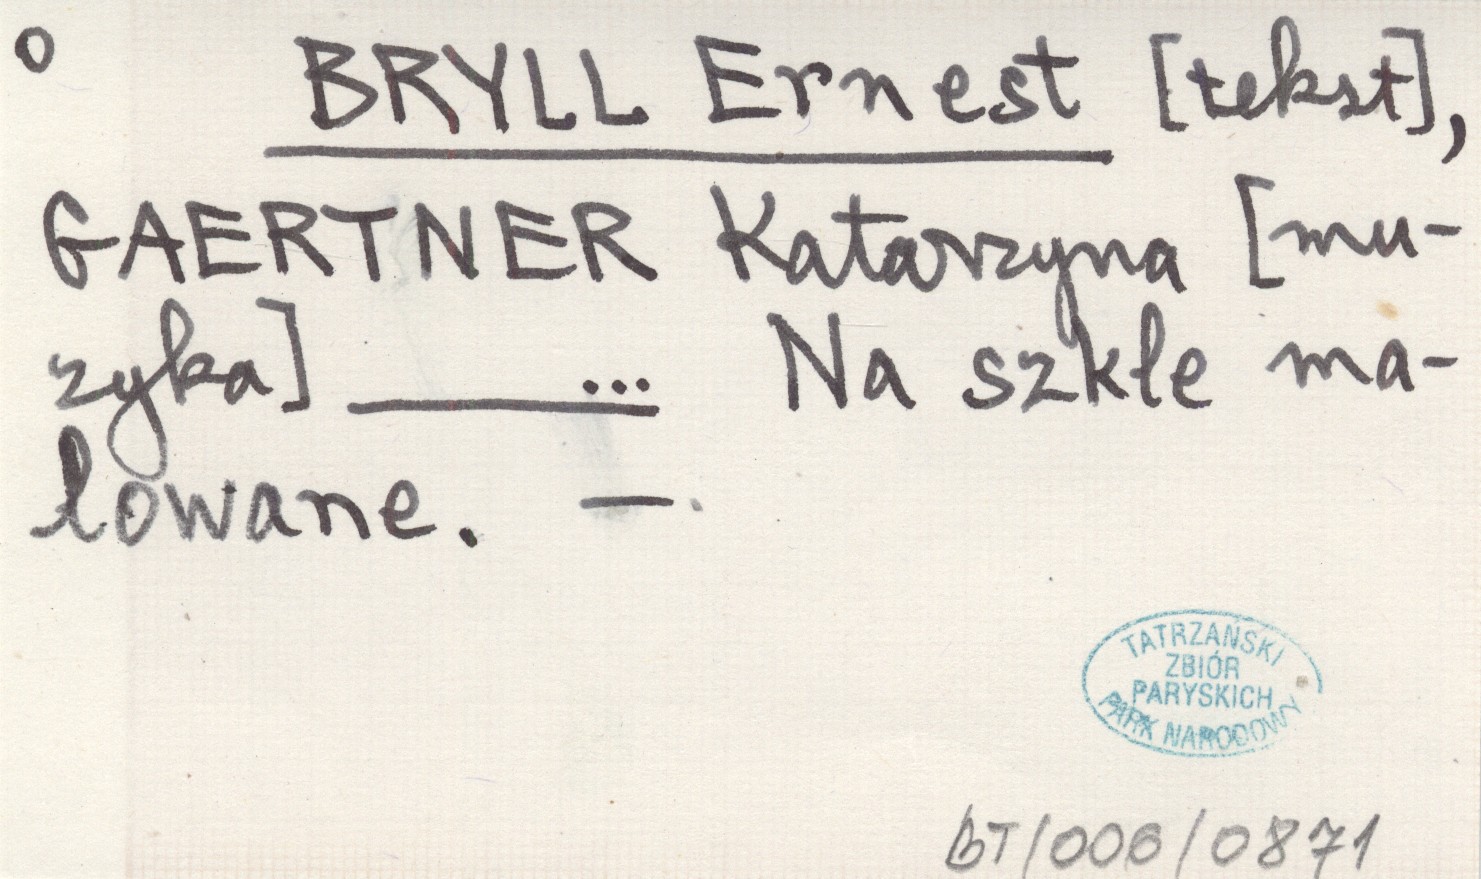 o BRYLL Ernest [tekst],
GAERTNER Katarzyna [mu-
zyka] ______ ... Na szkle ma-
lowane. —.
TATRZAŃSKI
ZBIÓR
PARYSKICH
PARK NARODOWY
BT/006/0871